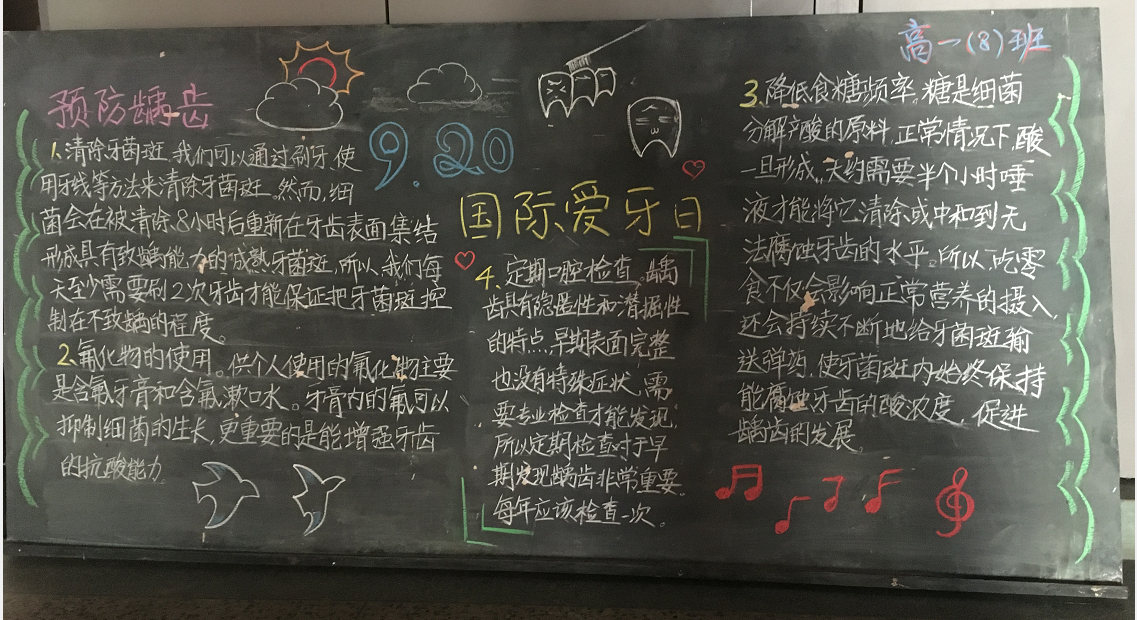 预防龋齿
1.清除牙菌斑.我们可以通过刷牙,使
用牙线等方法来清除牙菌斑.然而,细
菌会在被清除8小时后重新在牙齿表面集结
形成具有致龋能力的成熟牙菌斑,所以,我们每
天至少需要刷2次牙齿才能保证把牙菌斑控
制在不致龋的程度。
2.氟化物的使用。供个人使用的氟化物主要
是含氟牙膏和含氟漱口水。牙膏内的氟可以
抑制细菌的生长,更重要的是能增强牙齿
的抗酸能力.
9.20
国际爱牙日
4.定期口腔检查.龋
齿具有隐匿性和潜掘性
的特点,早期表面完整
也没有特殊症状,需
要专业检查才能发现,
所以定期检查对于早
期发现龋齿非常重要.
每年应该检查一次。
高一(8)班
3.降低食糖频率.糖是细菌
分解产酸的原料,正常情况下,酸
一旦形成,大约需要半个小时唾
液才能将它清除或中和到无
法腐蚀牙齿的水平。所以,吃零
食不仅会影响正常营养的摄入,
还会持续不断地给牙菌斑输
送弹药,使牙菌斑内始终保持
能腐蚀牙齿的酸浓度,促进
龋齿的发展。